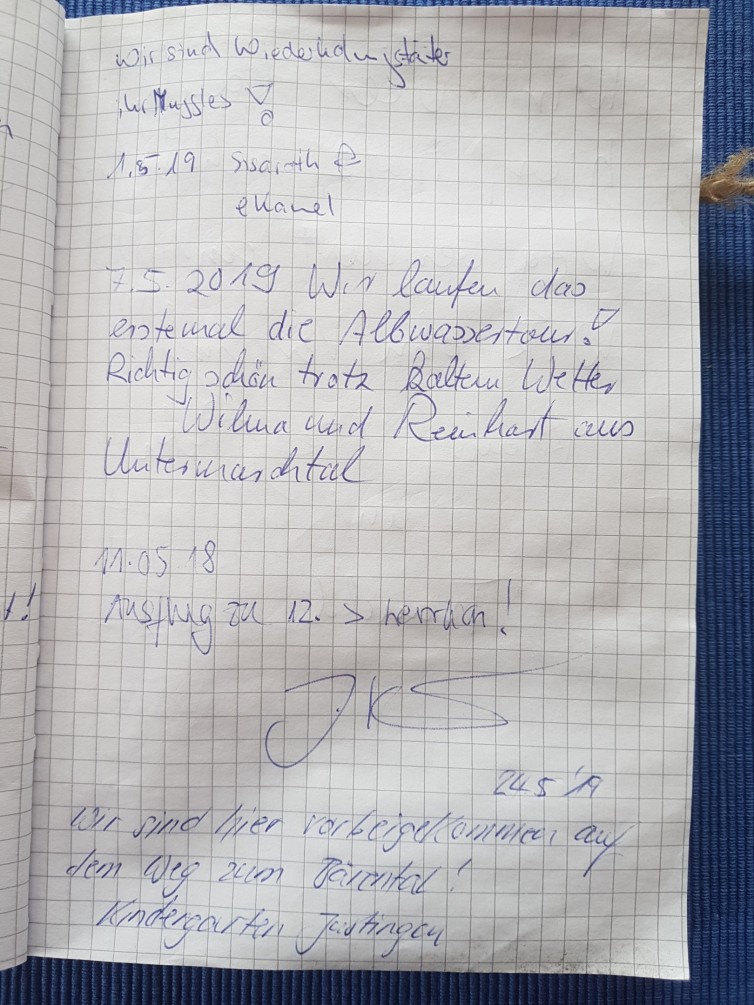 wir sind Wiederholungstäter
ihr Muggles !
1.5.19
eKamel
7.5.2019 Wir laufen das
erstemal die Albwassertour!
Richtig schön trotz kaltem Wetter
Wilma und Reinhart aus
Untermarchtal
11.05.18
Ausflug zu 12. > herrlich!
JKS
24.5.'19
Wir sind hier vorbeigekommen auf
dem Weg zum Bärental!
Kindergarten Justingen